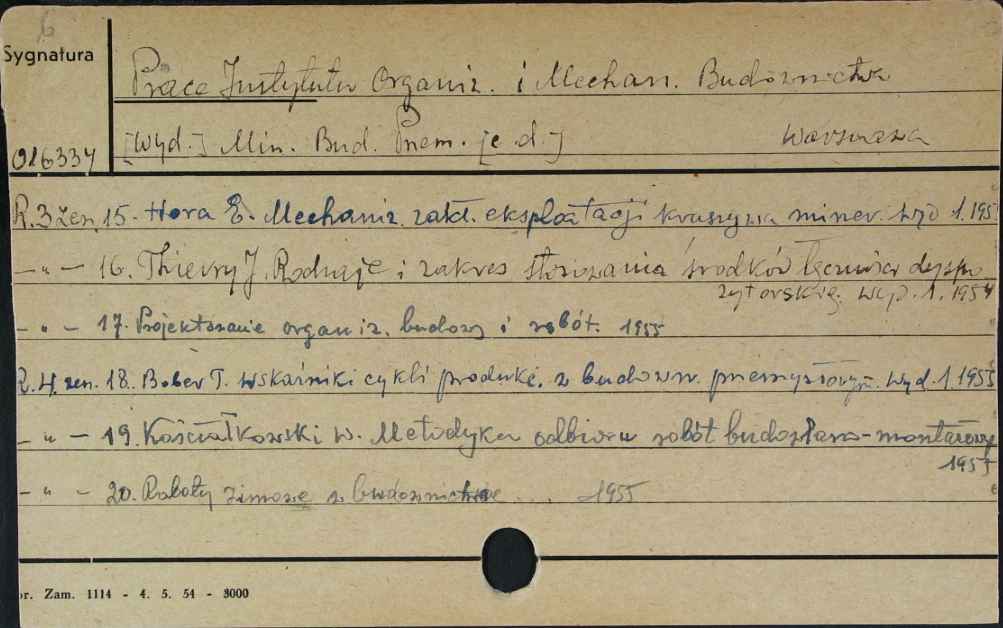 6
Sygnatura
Prace Instytutu Organiz. i Mechan. Budownictwa
016334 [Wyd.] Min. Bud. Przem. [e. d.] Warszawa
R. 3 Zesz. 15. Hora E. Mechaniz. zakł. eksploatacji kruszywa miner. Wyd. 1. 195
— " — 16. Thierry J. Rodzaje i zakres stosowania środków łączności dyspo
zytorskiej. Wyd. 1. 1954
— " — 17. Projektowanie organiz. budowy i robót. 1955
R. 4 zesz. 18. Bober T. Wskaźniki cykli produkc. w budown. przemysłowym. Wyd. 1. 1955
— " — 19. Kościałkowski W. Metodyka odbioru robót budowlano-montażowy
1955
— " — 20. Roboty zimowe w budownictwie ... 1955
r. Zam. 1114 - 4. 5. 54 - 3000